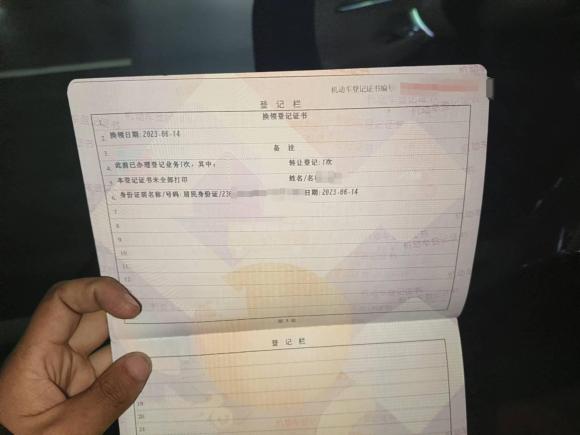 机动车登记证书编号:
登 记 栏
1. 换领登记证书
2. 换领日期:2023-06-14
3. 备 注
4. 此前已办理登记业务1次,其中: 转让登记:1次
5. 本登记证书未全部打印 姓名/名
6. 身份证明名称/号码:居民身份证/23 日期:2023-06-14
7
8
9
10
11
12
登 记 栏
19
20
21